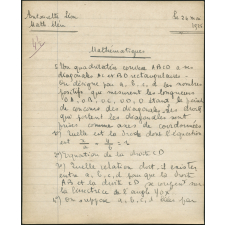 Antomatti Léon
le 24 mai
Math élém
1938
Mathématiques
1) Un quadrilatère convexe ABCD a ses
diagonales AC et BD rectangulaires
On désigne par a, b, c, d les nombres
positifs qui mesurent les longueurs
OA, OB, OC, OD, O étant le point de
concours des diagonales. Les droites
qui portent les diagonales sont
prises comme axes de coordonnées
1°) Quelle est la droite dont l'équation
est x/a + y/b = 1
2°) Equation de la droite CD
3°) Quelle relation doit-il exister
entre a, b, c, d pour que la droite
AB et la droite CD se coupent sur
la bissectrice de l'angle xOy
4°) On suppose a, b, c, d